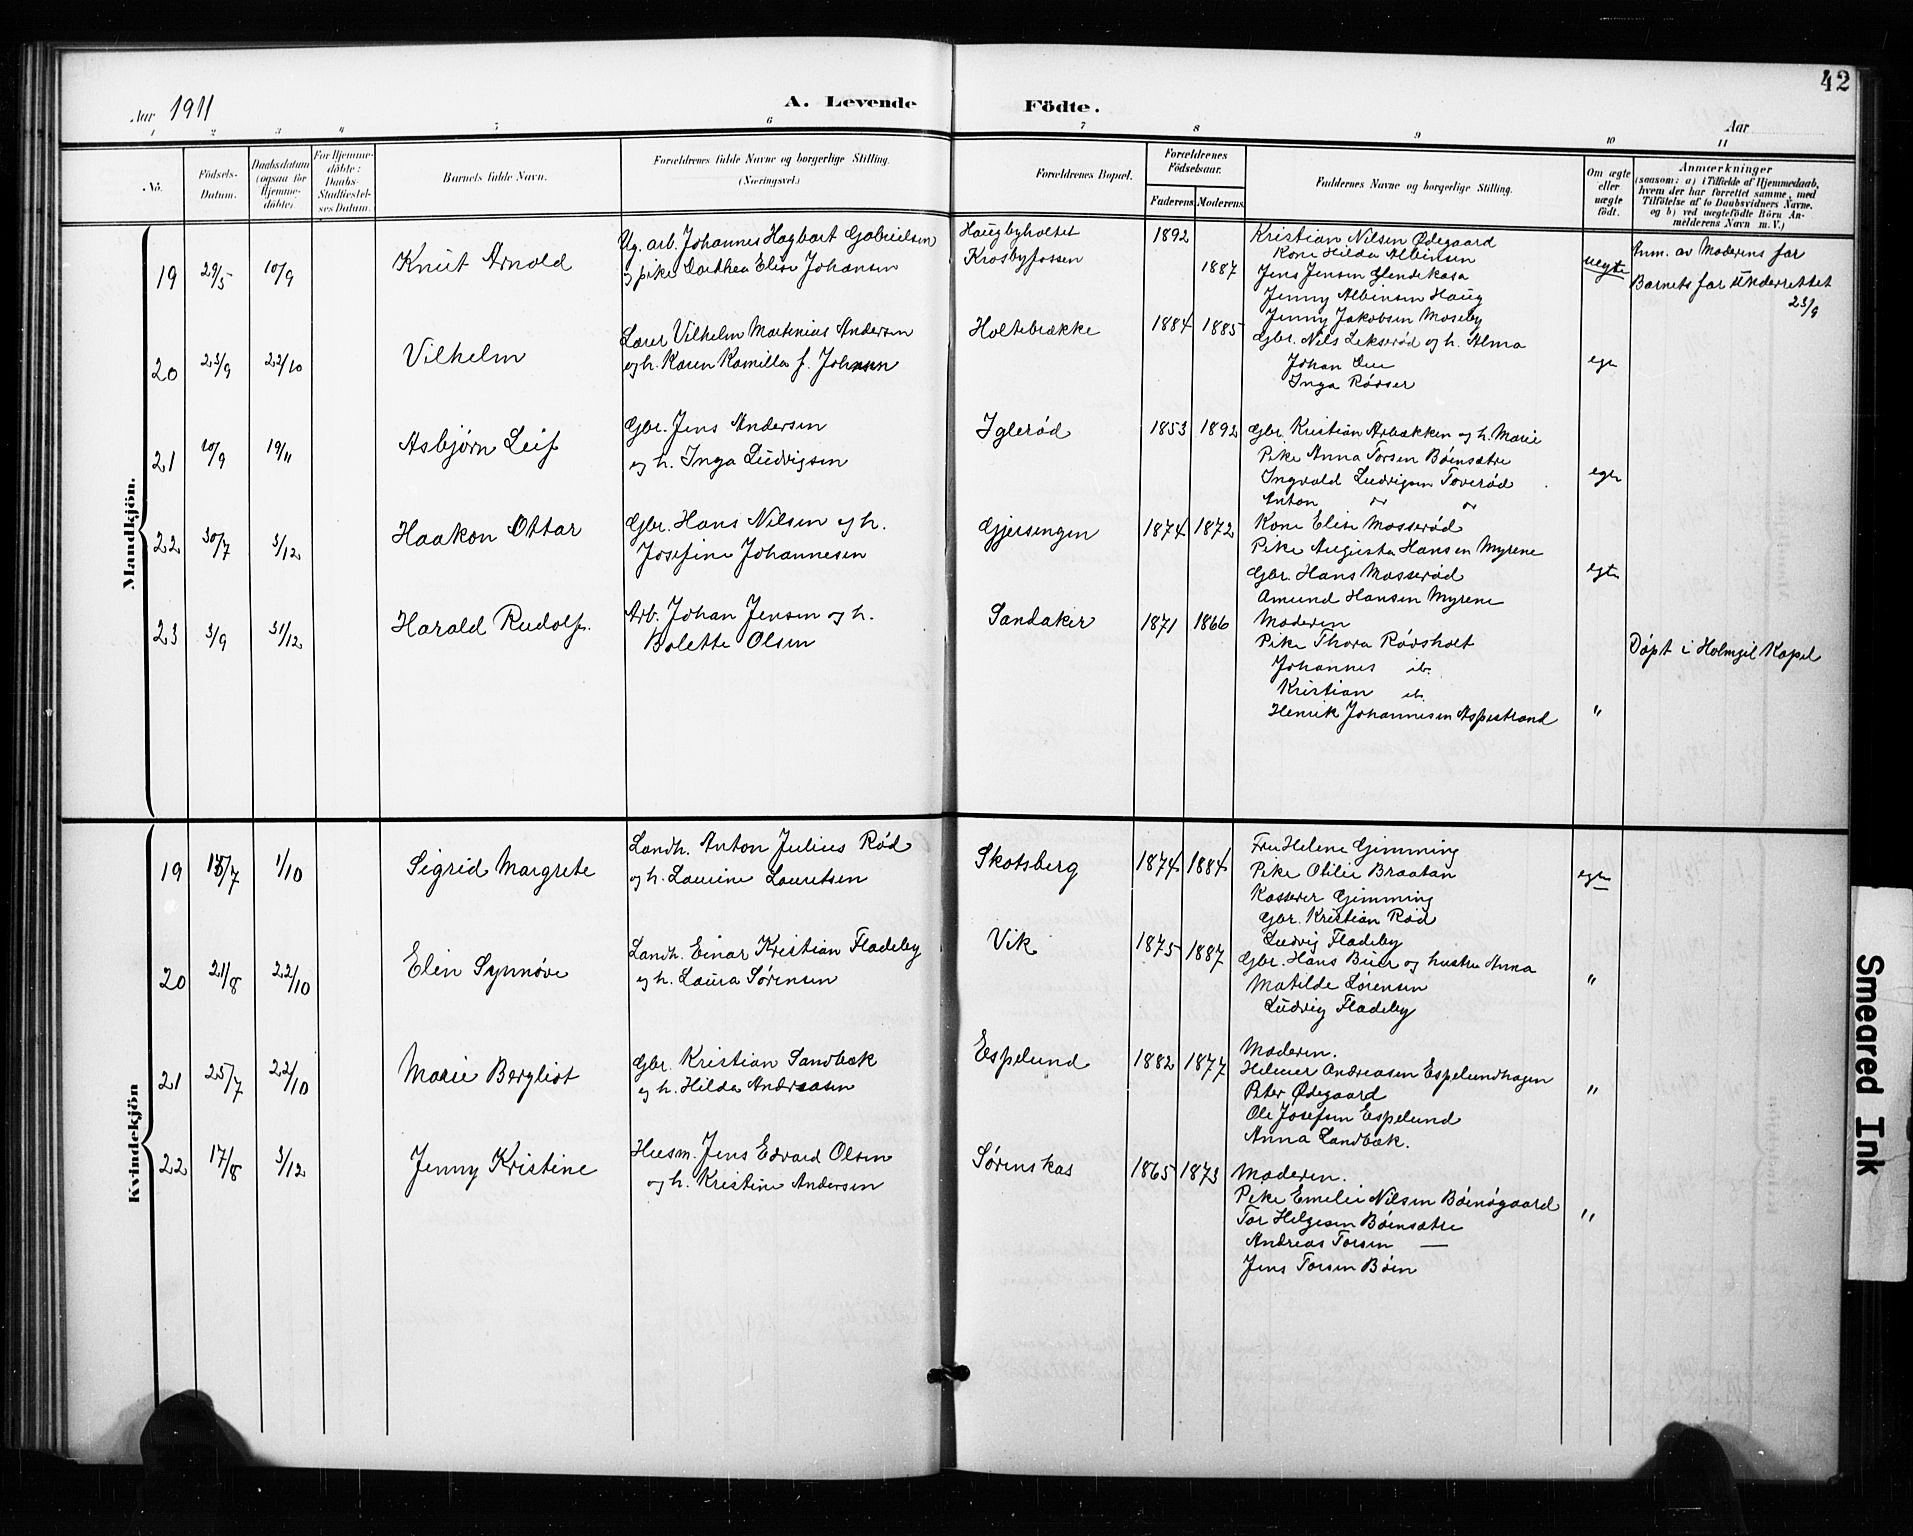 42
Aar 1911
A. Levende Födte.
Aar
1 2 3 4 5 6 7 8 9 10 11
No.
Födsels-Datum.
Daabsdatum (ogsaa for Hjemme-döbte).
For Hjemme-döbte: Daabs-Stadfæstel-ses Datum.
Barnets fulde Navn.
Forældrenes fulde Navne og borgerlige Stilling. (Næringsvei.)
Forældrenes Bopæl.
Forældrenes Födselsaar.
Faderens Moderens
Faddernes Navne og borgerlige Stilling.
Om ægte eller uægte födt.
Anmærkninger
(saasom: a) i Tilfælde af Hjemmedaab,
hvem der har forrettet samme, med
Tilföielse af to Daabsvidners Navne.
og b) ved uægtefödte Börn An-
melderens Navn m. V.)
Mandkjön.
19 29/5 10/9 Knut Arnold
Ug. arb. Johannes Hagbart Gabrielsen
og pike Dorthea Elise Johansen
Haugbyholtet
Krosbyfossen
1892
1887
Kristian Nilsen Ødegaard
Kone Hilda Albinsen
Jens Jensen Glendekasa
Jenny Albinsen Haug
Jenny Jakobsen Moseby
uegte
Anm. av Moderens far
Barnets far underrettet
23/9
20 23/9 22/10 Vilhelm
Lærer Vilhelm Martinius Andersen
og h. Karen Kamilla f. Johnsen
Holtebække
1884 1885
Gbr. Nils Lekserød og h. Alma
Johan Lie
Inga Rødser
egte
21 20/9 19/11 Asbjørn Leif
Gbr. Jens Andersen
og h. Inga Ludvigsen
Iglerød
1853 1892
Gbr. Kristian Arbækken og h. Marie
Pike Anna Torsen Böensætre
Ingvald Ludvigsen Toverød
Anton
egte
22 30/7 3/12 Haakon Ottar
Gbr. Hans Nilsen og h.
Josefine Johannesen
Gjersengen
1874 1872
Kone Elise Mosserød
Pike Augusta Hansen Myrene
Gbr. Hans Mosserød
Amund Hansen Myrene
egte
23 3/9 31/12 Harald Rudolf.
Arb. Johan Jensen og h.
Bolette Olsen
Sandaker
1871 1866
Moderen
Pike Thora Rødsholt
Johannes ib.
Kristian ib.
Henrik Johannesen Aspestrand
"
Døpt i Holmgil Kapel
Kvindekjön
19 15/7 1/10 Sigrid Margrete
Landh. Anton Julius Rød
og h. Laurine Lauritsen
Skotsberg
1874 1884
Fru Helene Gimming
Pike Otilie Braatan
Kasserer Gimming
Gbr. Kristian Rød
Ludvig Fladeby
egte
20 21/8 22/10 Elin Synnøve
Landh. Einar Kristian Fladeby
og h. Laura Sørensen
Vik
1875 1887
Gbr. Hans Buer og hustru Anna
Matilde Sørensen
Ludvig Fladeby
"
21 25/7 22/10 Marie Bergliot
Gbr. Kristian Sandbæk
og h. Hilda Andreasen
Espelund
1882 1877
Moderen.
Helmer Andreasen Espelundhagen
Peter Ødegaard
Ole Josefsen Espelund
Anna Sandbæk.
"
22 17/8 3/12 Jenny Kristine
Husm. Jens Edvard Olsen
og h. Kristine Andersen
Sørenskas
1865 1873
Moderen.
Pike Emelie Nilsen Böensgaard
Tor Helgesen Böensætre
Andreas Torsen —
Jens Torsen Böen
"
Smeared Ink